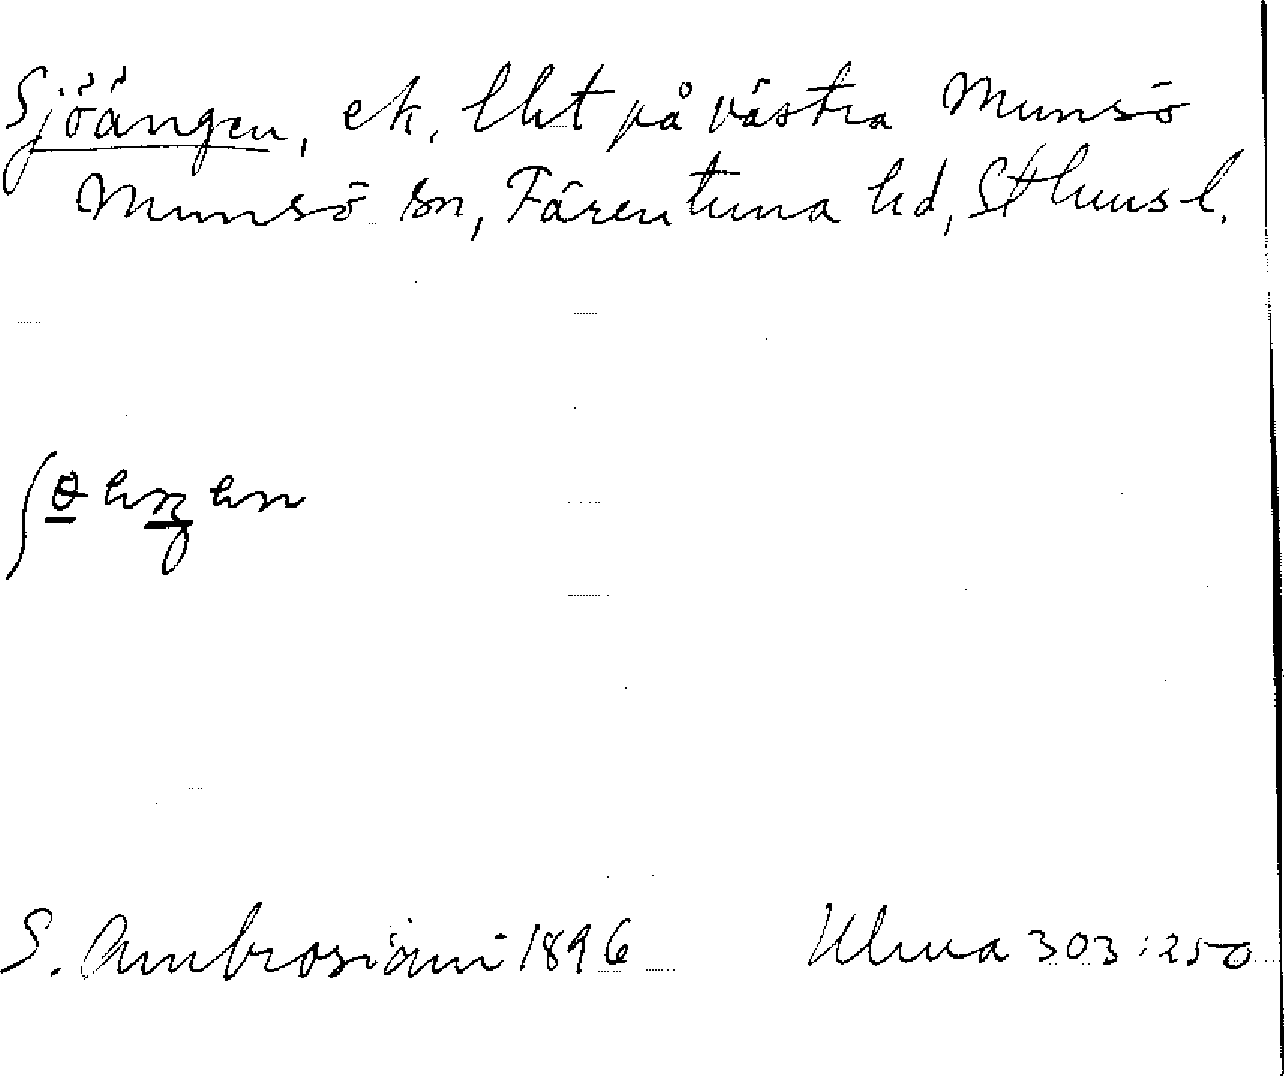 Sjöängen, ek, lht på västra Munsö
Munsö sn, Färentuna hd, Sthlms l.
S. Ambrosiani 1896 Ulma 303:250